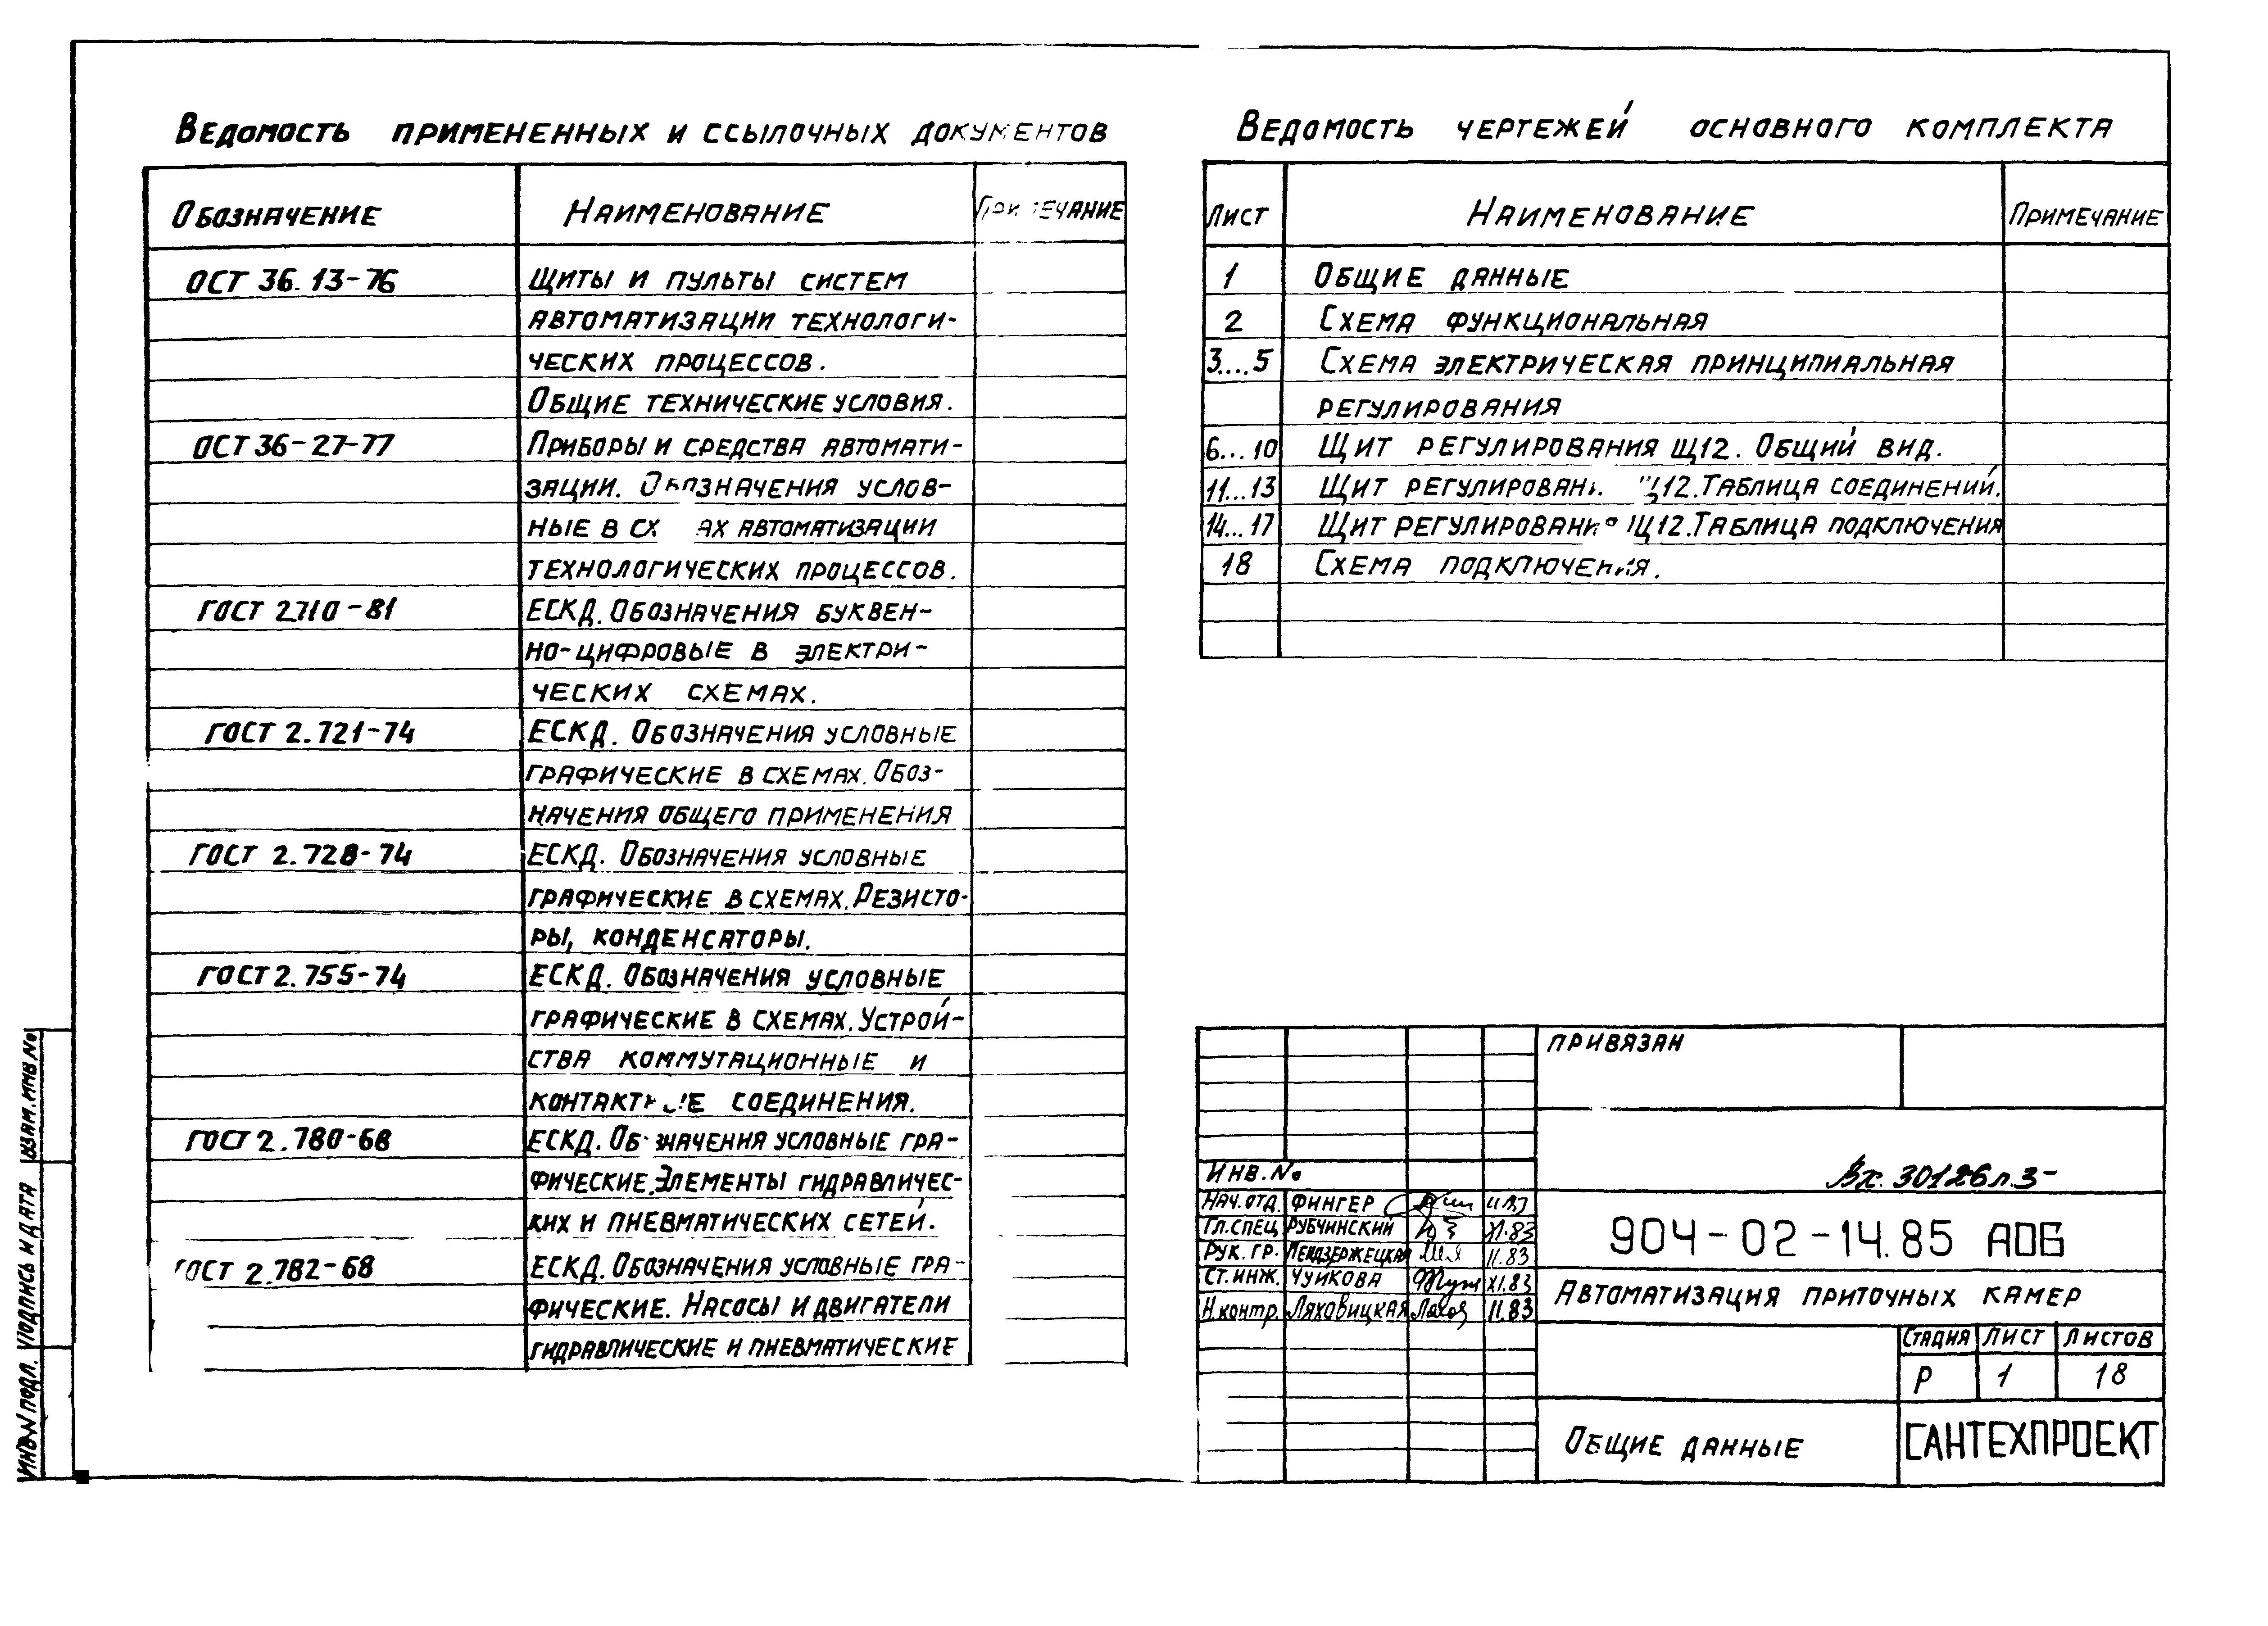 Ведомость примененных и ссылочных документов
Обозначение Наименование Примечание
ОСТ 36.13-76 Щиты и пульты систем
автоматизации технологи-
ческих процессов.
Общие технические условия.
ОСТ 36-27-77 Приборы и средства автомати-
зации. Обозначения услов-
ные в схемах автоматизации
технологических процессов.
ГОСТ 2.710-81 ЕСКД. Обозначения буквен-
но-цифровые в электри-
ческих схемах.
ГОСТ 2.721-74 ЕСКД. Обозначения условные
графические в схемах. Обоз-
начения общего применения
ГОСТ 2.728-74 ЕСКД. Обозначения условные
графические в схемах. Резисто-
ры, конденсаторы.
ГОСТ 2.755-74 ЕСКД. Обозначения условные
графические в схемах. Устрой-
ства коммутационные и
контактные соединения.
ГОСТ 2.780-68 ЕСКД. Обозначения условные гра-
фические. Элементы гидравличес-
ких и пневматических сетей.
ГОСТ 2.782-68 ЕСКД. Обозначения условные гра-
фические. Насосы и двигатели
гидравлические и пневматические
Ведомость чертежей основного комплекта
Лист Наименование Примечание
1 Общие данные
2 Схема функциональная
3...5 Схема электрическая принципиальная
регулирования
6...10 Щит регулирования Щ12. Общий вид.
11...13 Щит регулирования Щ12. Таблица соединений.
14...17 Щит регулирования Щ12. Таблица подключения
18 Схема подключения.
Привязан
Инв. №
Вх. 30126 л.3-
Нач. отд. Фингер 11.83
Гл. спец. Рубчинский XI.83
Рук. гр. 11.83
Ст. инж. Чуйкова XI.83
Н. контр. Ляховицкая 11.83
904-02-14.85 АОБ
Автоматизация приточных камер
Стадия Лист Листов
Р 1 18
Общие данные
САНТЕХПРОЕКТ
Взам. инв. №
Подпись и дата
Инв. № подл.